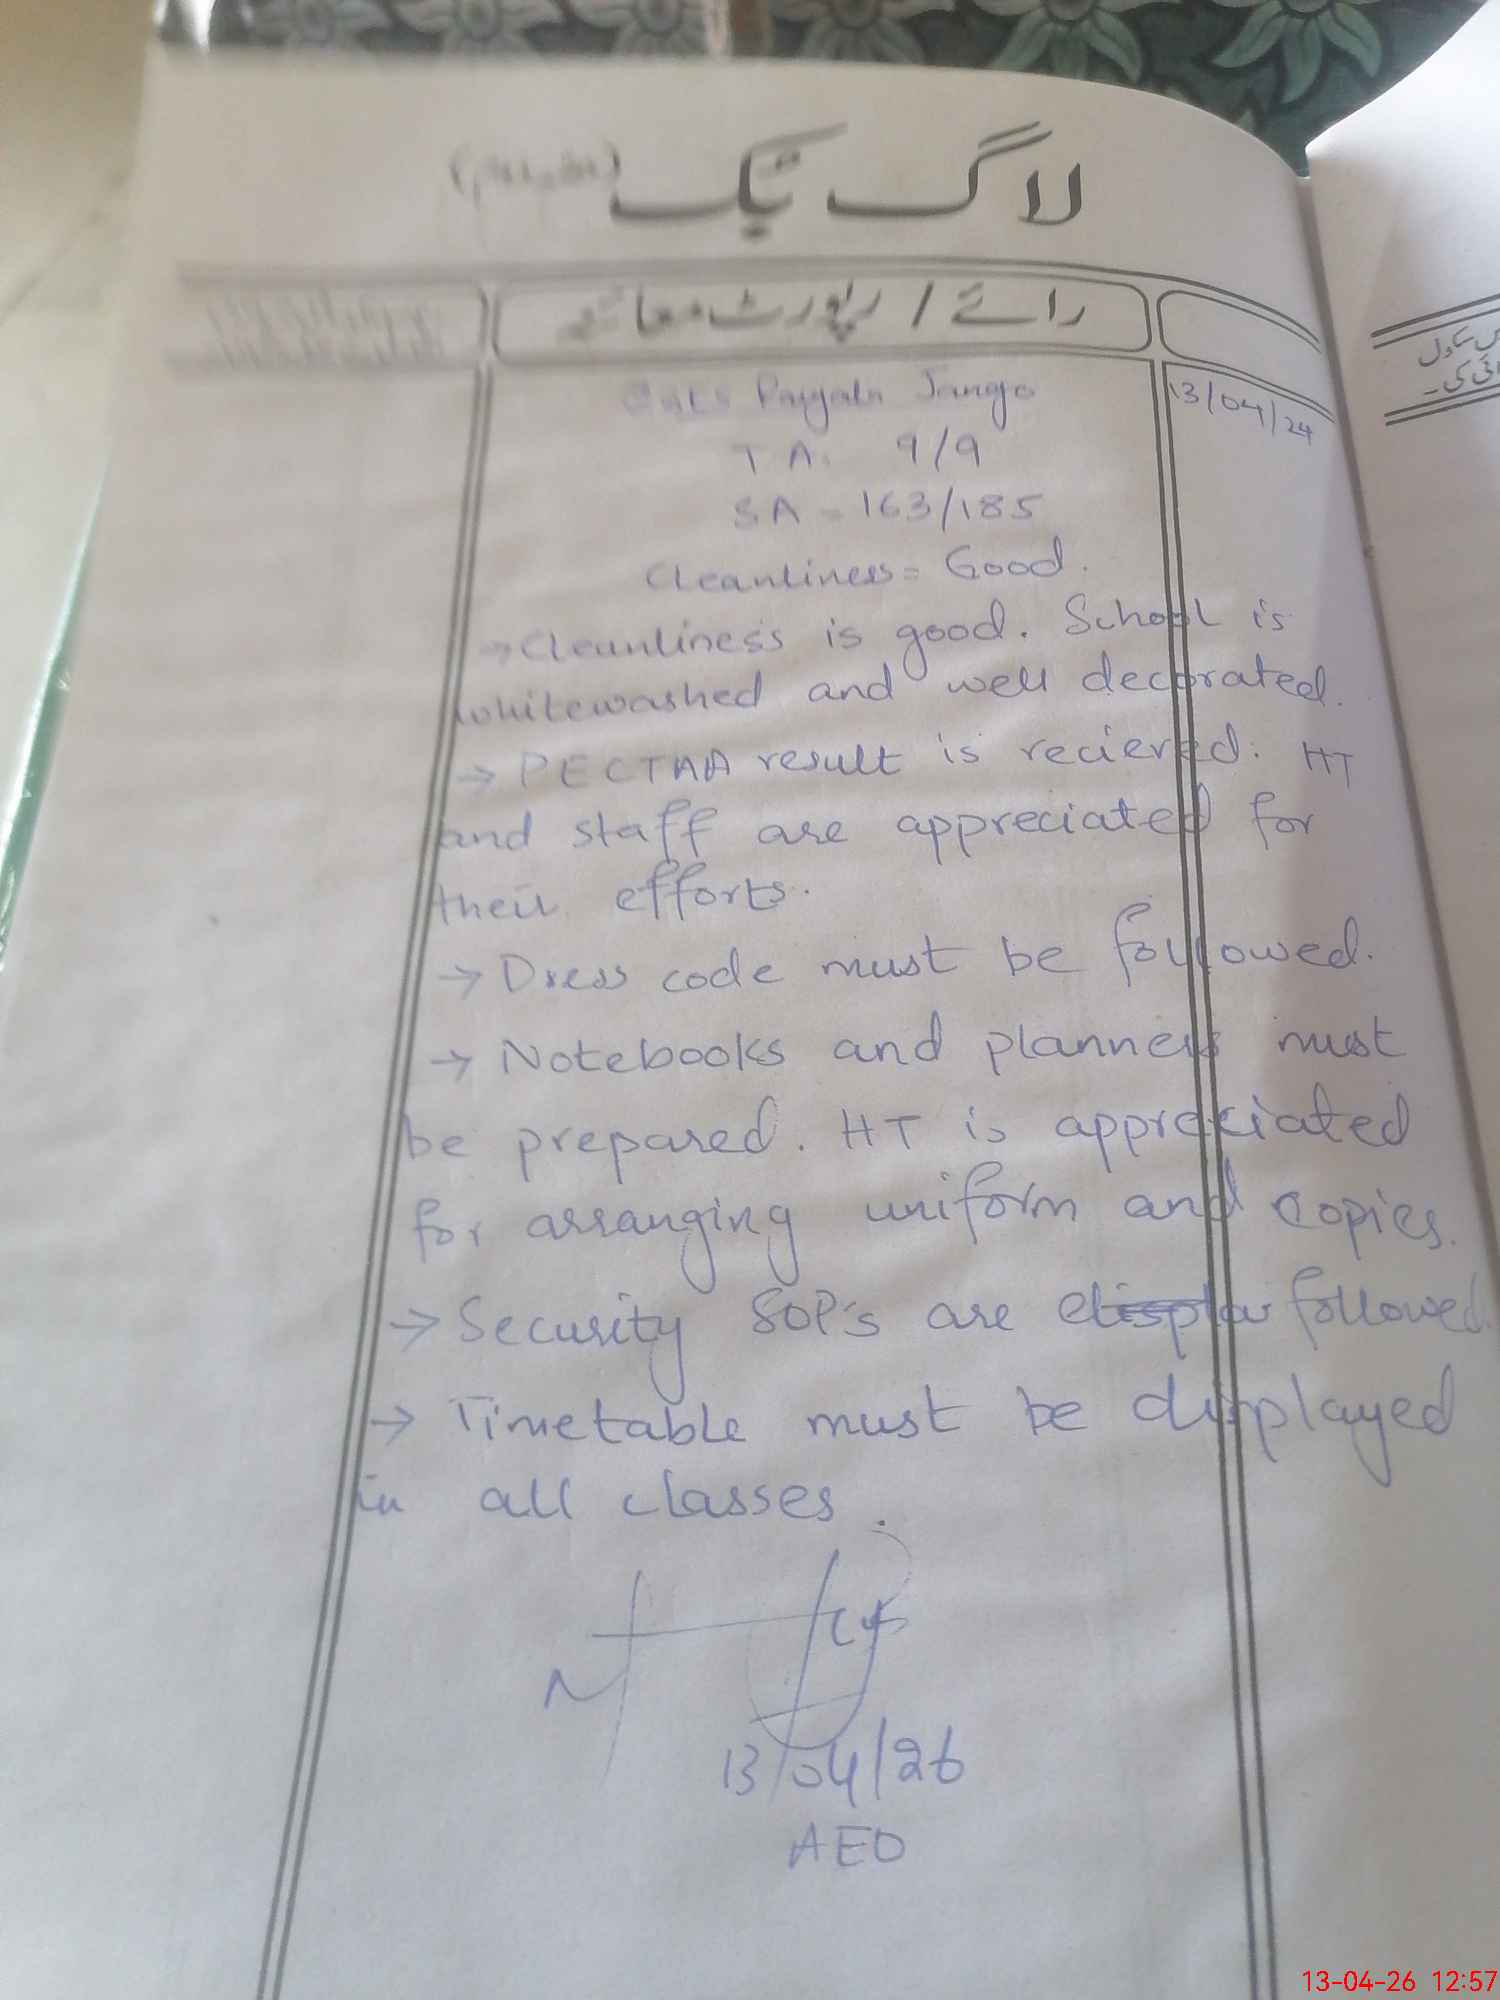 لاگ بک
رائے / رپورٹ معائنہ
Payyala Jango
13/04/24
TA: 9/9
SA - 163/185
Cleanliness = Good.
→ Cleanliness is good. School is
whitewashed and well decorated.
→ PECTAA result is recieved. HT
and staff are appreciated for
their efforts.
→ Dress code must be followed.
→ Notebooks and planners must
be prepared. HT is appreciated
for arranging uniform and copies.
→ Security SOP's are displa followed.
→ Timetable must be displayed
in all classes.
13/04/26
AEO
13-04-26 12:57